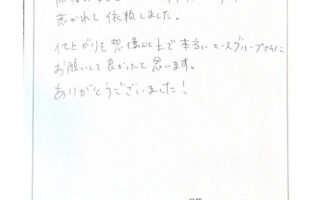 惹かれて依頼しました。
仕上がりも想像以上で本当にエースグループさんに
お願いして良かったと思います。
ありがとうございました！